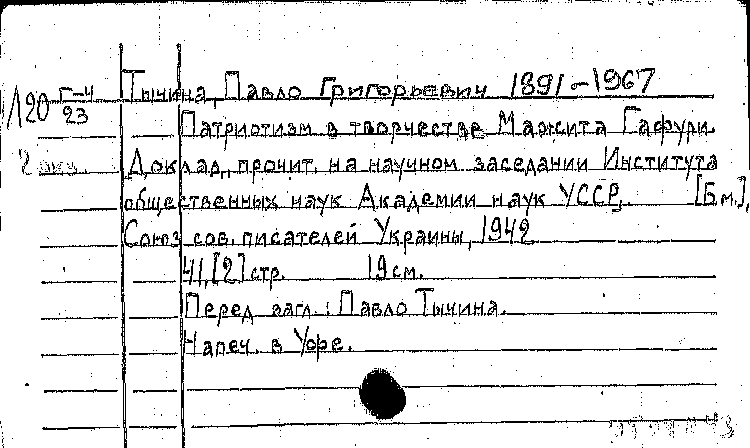 Л20 Г-4/23 Тычина, Павло Григорьевич 1891-1967
Патриотизм в творчестве Мажита Гафури.
2 экз. Доклад, прочит. на научном заседании Института
общественных наук Академии наук УССР. [Б.м.],
Союз сов. писателей Украины, 1942
41, [2] стр. 19 см.
Перед загл.: Павло Тычина.
Напеч. в Уфе.